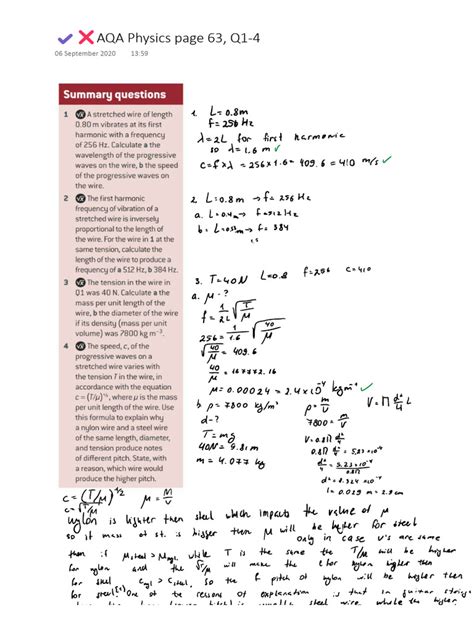 AQA Physics page 63, Q1-4
06 September 2020 13:59
Summary questions
1 A stretched wire of length
0.80 m vibrates at its first
harmonic with a frequency
of 256 Hz. Calculate a the
wavelength of the progressive
waves on the wire, b the speed
of the progressive waves on
the wire.
2 The first harmonic
frequency of vibration of a
stretched wire is inversely
proportional to the length of
the wire. For the wire in 1 at the
same tension, calculate the
length of the wire to produce a
frequency of a 512 Hz, b 384 Hz.
3 The tension in the wire in
Q1 was 40 N. Calculate a the
mass per unit length of the
wire, b the diameter of the wire
if its density (mass per unit
volume) was 7800 kg m⁻³.
4 The speed, c, of the
progressive waves on a
stretched wire varies with
the tension T in the wire, in
accordance with the equation
c = (T/μ)^½, where μ is the mass
per unit length of the wire. Use
this formula to explain why
a nylon wire and a steel wire
of the same length, diameter,
and tension produce notes
of different pitch. State, with
a reason, which wire would
produce the higher pitch.
1. L = 0.8m
f = 256 Hz
λ = 2L for first harmonic
so λ = 1.6 m ✓
c = f × λ = 256 × 1.6 = 409.6 = 410 m/s ✓
2. L = 0.8m → f = 256 Hz
a. L = 0.4m → f = 512 Hz
b. L = 0.53m → f = 384
3. T = 40N L = 0.8 f = 256 c = 410
a. μ - ?
f = 1/2L √T/μ
256 = 1/1.6 √40/μ
√40/μ = 409.6
40/μ = 167772.16
μ = 0.00024 = 2.4×10⁻⁴ kgm⁻¹ ✓
b ρ = 7800 kg/m³
d - ?
T = mg
40N = 9.81m
m = 4.077 kg
ρ = m/V
7800 = m/V
V = π d²/4 L
c = (T/μ)^1/2 μ = M/
c = √T/μ
nylon is lighter then steel which impacts the value of μ
so if mass of st. is bigger then μ will be higher for steel
only in case v's are same
then if μsteel > μnyl, while T is the same the T/μ will be higher
for nylon and the √T/μ will make the c for nylon higher then
for steel cnyl > csteel, so the f pitch of nylon will be higher then
for steel One of the reasons of explanation is that in guitar strings